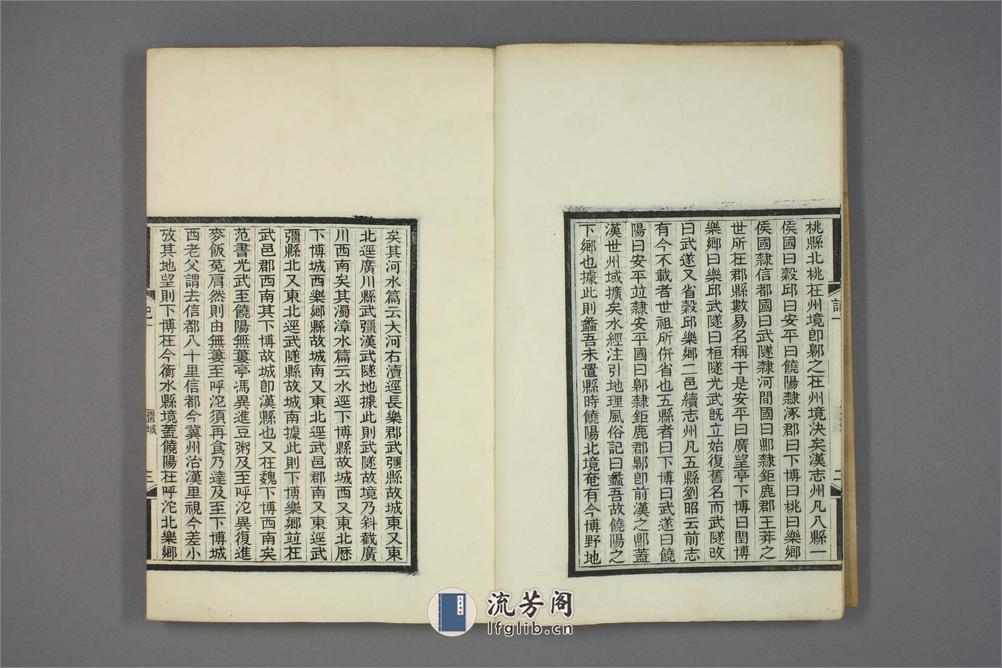 桃縣北桃在州境卽鄡之在州境決矣漢志州凡八縣一
侯國曰穀邱曰安平曰饒陽隸涿郡曰下博曰桃曰樂鄉
侯國隸信都國曰武隧隸河間國曰鄡隸鉅鹿郡王莽之
世所在郡縣數易名稱于是安平曰廣望亭下博曰閏博
樂鄉曰樂邱武隧曰桓隧光武旣立始復舊名而武隧改
曰武遂又省穀邱樂鄉二邑續志州凡五縣劉昭云前志
有今不載者世祖所併省也五縣者曰下博曰武遂曰饒
陽曰安平竝隸安平國曰鄡隸鉅鹿郡鄡卽前漢之鄡蓋
漢世州域擴矣水經注引地理風俗記曰蠡吾故饒陽之
下鄉也據此則蠡吾未置縣時饒陽北境奄有今博野地
二
矣其河水篇云大河右瀆逕長樂郡武彊縣故城東又東
北逕廣川縣武彊漢武隧地據此則武隧故境乃斜截廣
川西南矣其濁漳水篇云水逕下博縣故城西又東北歷
下博城西樂鄉縣故城南又東北逕武邑郡南又東逕武
彊縣北又東北逕武隧縣故城南據此則下博樂鄉竝在
武邑郡西南其下博故城卽漢縣也又在魏下博西南矣
范書光武至饒陽無蔞亭馮異進豆粥及至呼沱異復進
麥飯菟肩然則由無蔞至呼沱須再食乃達及至下博城
西老父謂去信都八十里信都今冀州治漢里視今差小
攷其地望則下博在今衡水縣境蓋饒陽在呼沱北樂鄉
記一
疆域
三
流芳阁
lfglib.cn